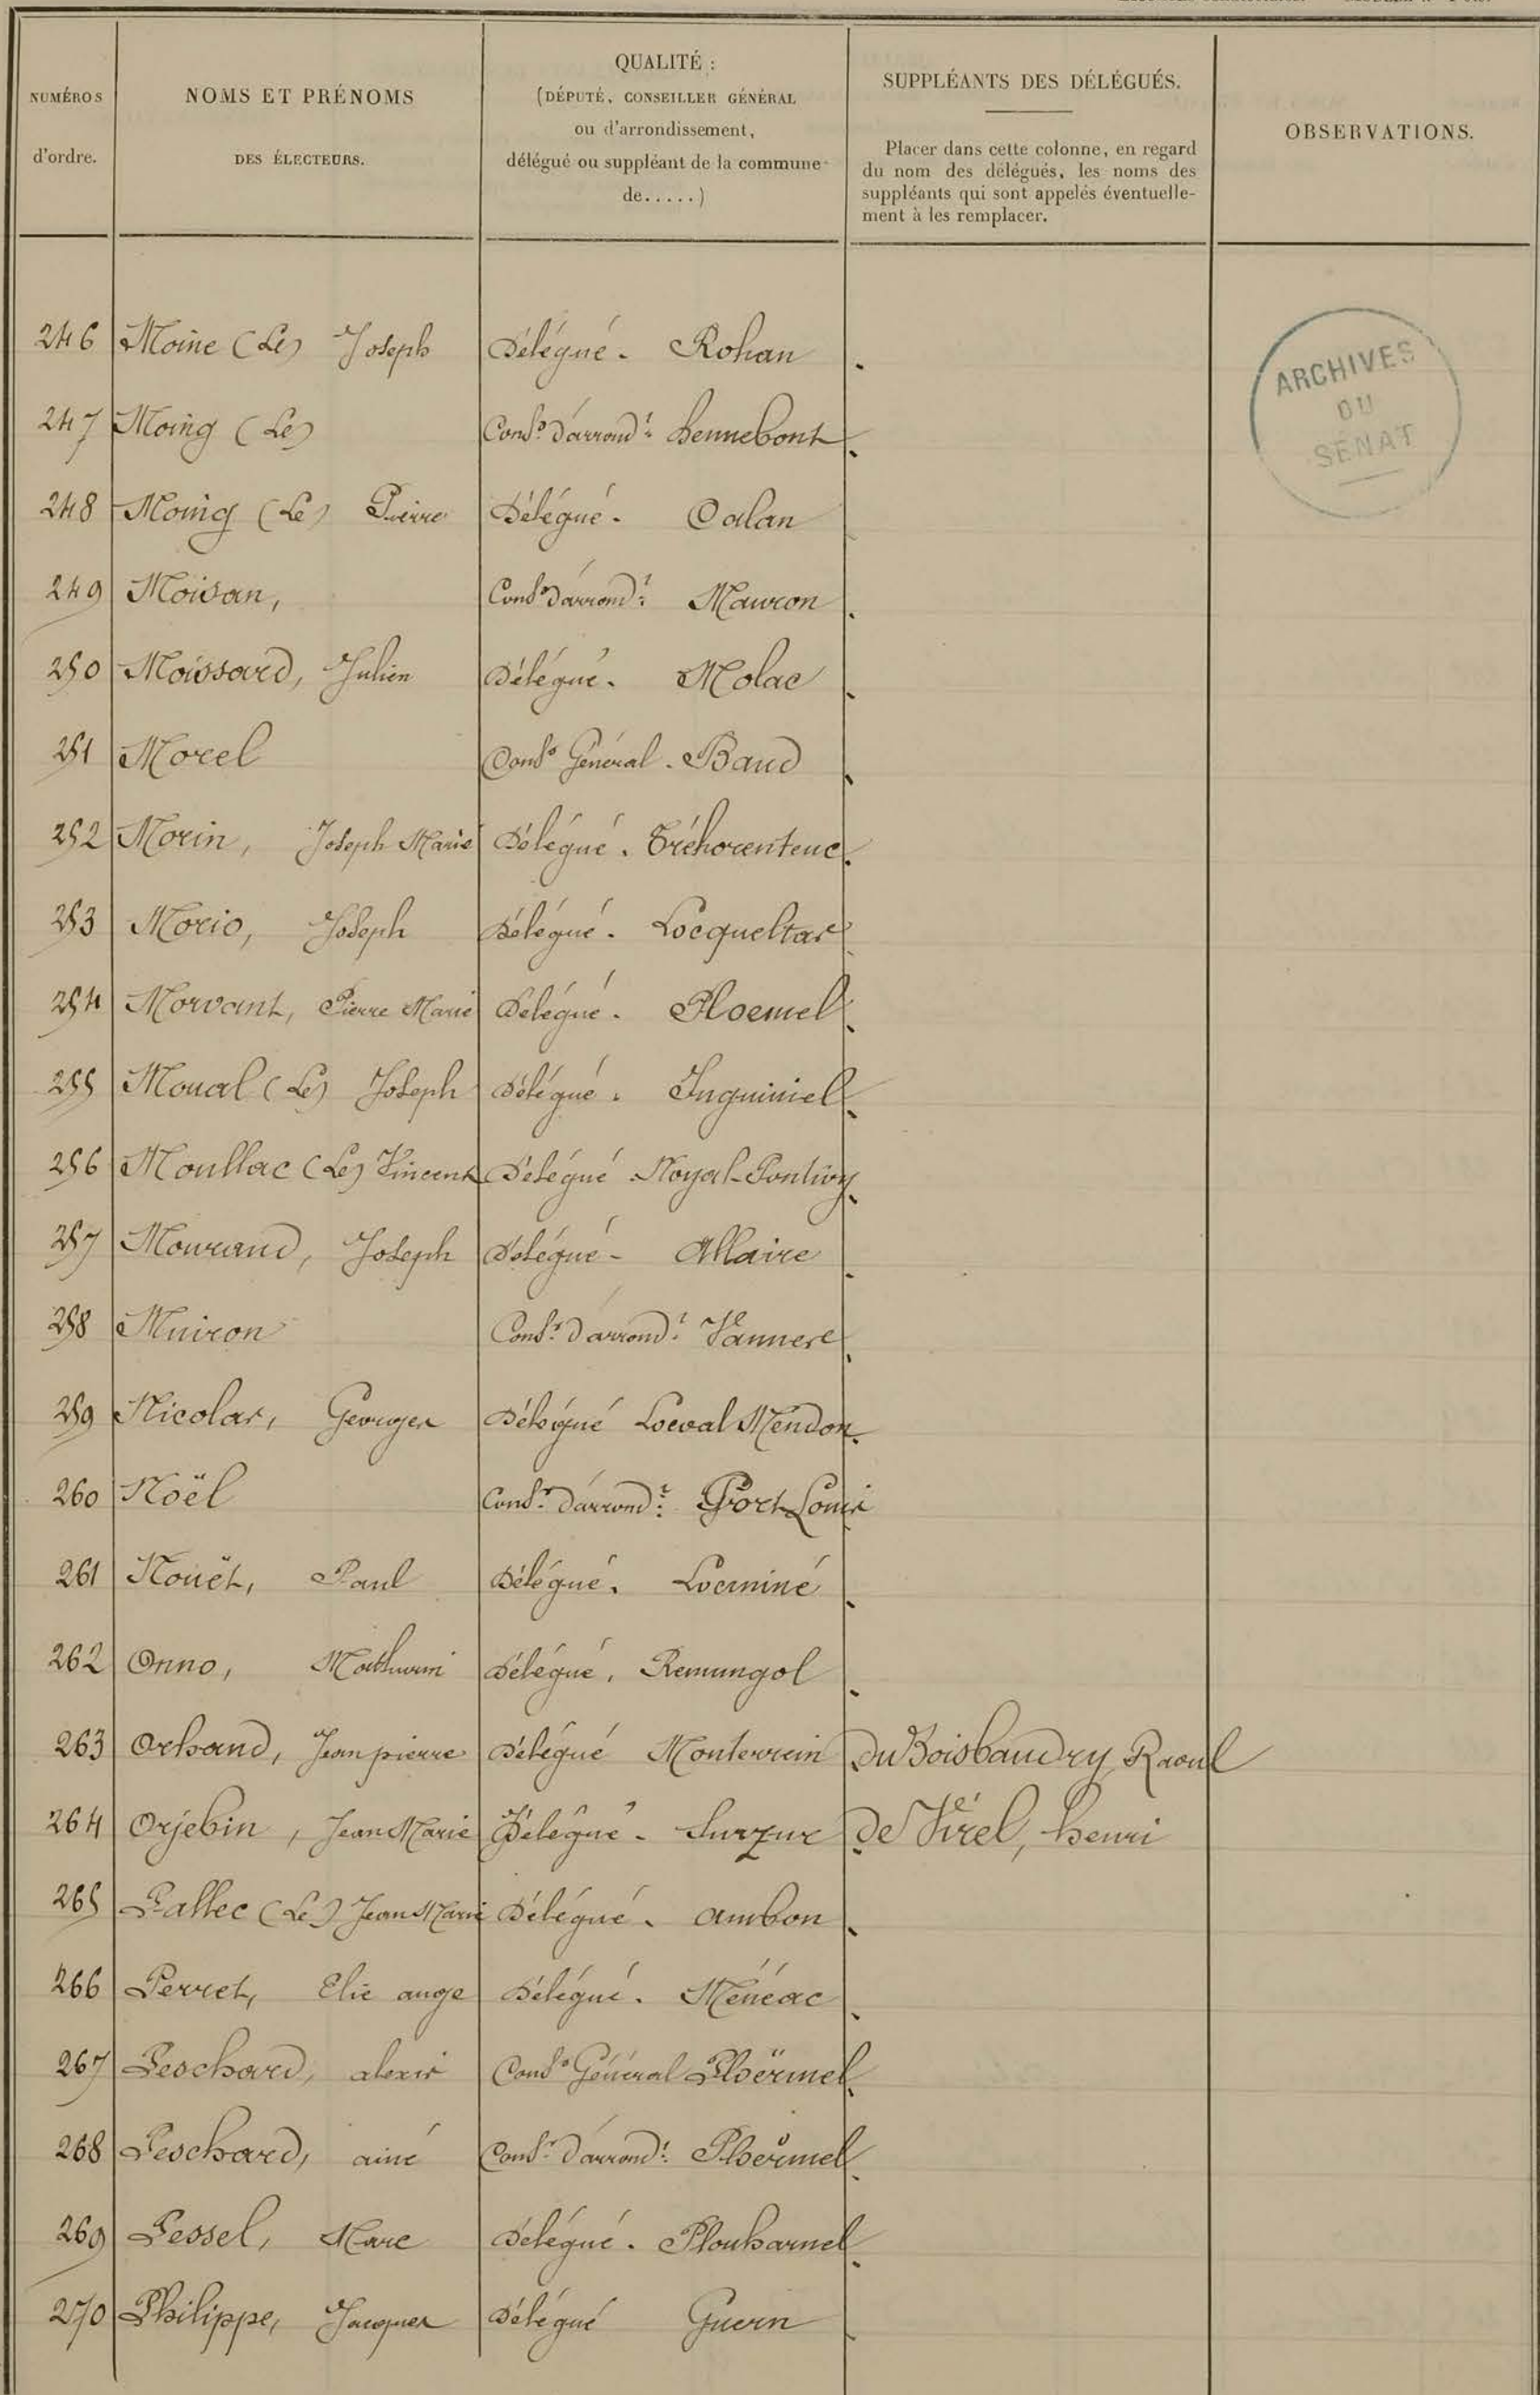 NUMÉROS d'ordre.
NOMS ET PRÉNOMS
DES ÉLECTEURS.
QUALITÉ :
(DÉPUTÉ, CONSEILLER GÉNÉRAL
ou d'arrondissement,
délégué ou suppléant de la commune
de.....)
SUPPLÉANTS DES DÉLÉGUÉS.
Placer dans cette colonne, en regard
du nom des délégués, les noms des
suppléants qui sont appelés éventuelle-
ment à les remplacer.
OBSERVATIONS.
ARCHIVES
DU
SÉNAT
246 Moine (Le) Joseph Délégué. Rohan
247 Moing (Le) Consr d'arrondt hennebont
248 Moing (Le) Pierre Délégué. Calan
249 Moisan, Consr d'arrondt Mauron
250 Moissard, Julien Délégué. Molac
251 Morel Consr Général. Baud
252 Morin, Joseph Marie Délégué. Tréhorenteuc
253 Morio, Joseph Délégué. Locqueltas
254 Morvant, Pierre Marie Délégué. Ploemel
255 Moual (Le) Joseph Délégué. Inguiniel
256 Moullac (Le) Vincent Délégué Noyal-Pontivy
257 Mourand, Joseph Délégué - Allaire
258 Muiron Consr d'arrondt Vannes
259 Nicolas, Georges Délégué Locoal Mendon
260 Noël Consr d'arrondt Port Louis
261 Nouët, Paul Délégué. Locminé
262 Onno, Mathurin Délégué, Remungol
263 Orhand, Jean pierre Délégué Monterrein du Boisbaudry, Raoul
264 Orjebin, Jean Marie Délégué - Surzur de Virel, henri
265 Pallec (Le) Jean Marie Délégué. ambon
266 Perret, Elie ange Délégué. Ménéac
267 Peschard, alexis Consr Général Ploërmel
268 Peschard, ainé Consr d'arrondt Ploërmel
269 Pessel, Marc Délégué. Plouharnel
270 Philippe, Jacques Délégué Guern